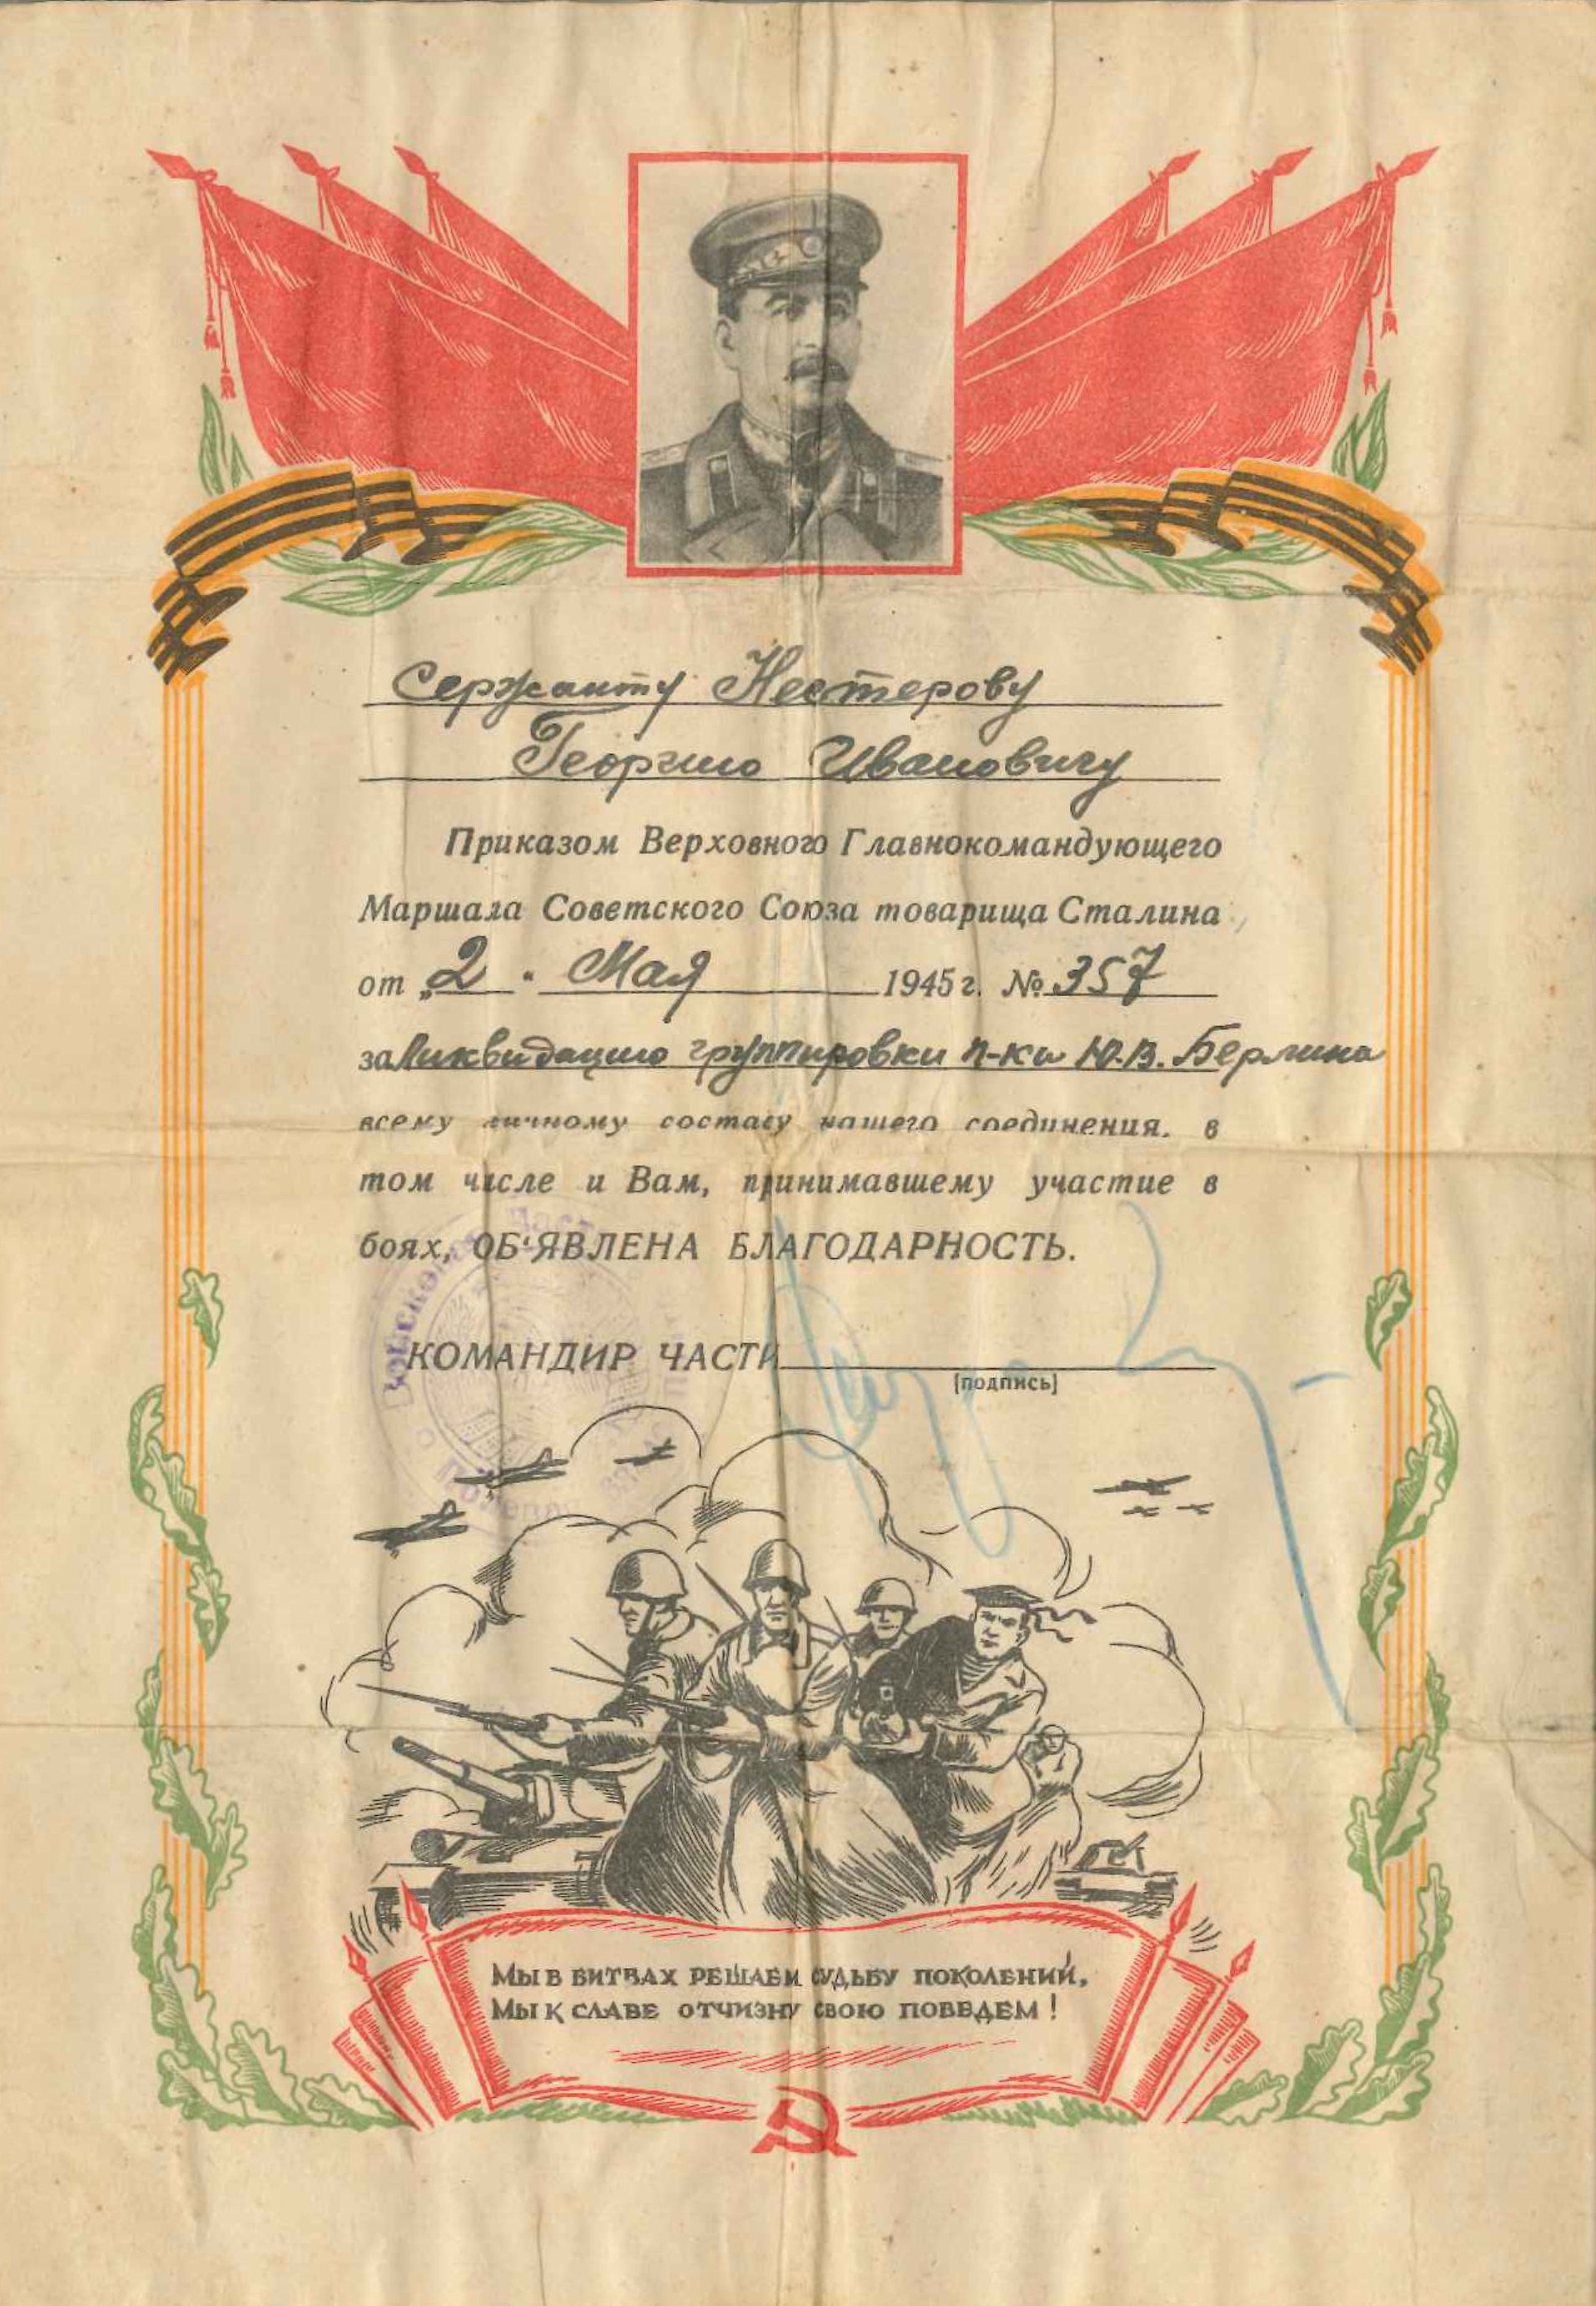 Сержанту Нестерову
Георгию Ивановичу
Приказом Верховного Главнокомандующего
Маршала Советского Союза товарища Сталина
от „2" Мая 1945 г. № 357
за Ликвидацию группировки п-ка Ю.В. Берлина
всему личному составу нашего соединения, в
том числе и Вам, принимавшему участие в
боях, ОБ‘ЯВЛЕНА БЛАГОДАРНОСТЬ.
КОМАНДИР ЧАСТИ
(подпись)
МЫ В БИТВАХ РЕШАЕМ СУДЬБУ ПОКОЛЕНИЙ,
МЫ К СЛАВЕ ОТЧИЗНУ СВОЮ ПОВЕДЕМ!